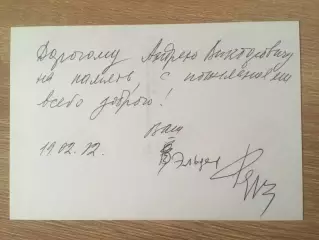 Дорогому Андрею Викторовичу
на память с пожеланием
всего доброго!
Ваш
19.02.12. Эльцен